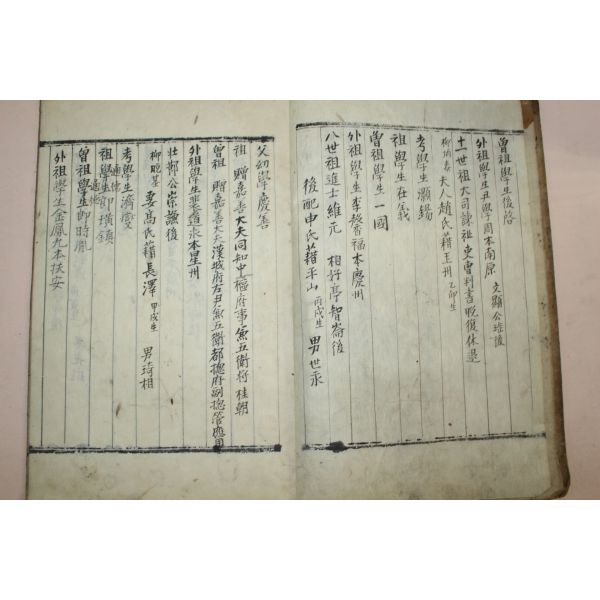 曾祖學生後啓
外祖學生丑學周本南原 文顯公後
十一世祖大司諫 吏曹判書 休退
大人趙氏籍玉州 乙卯生
考學生灝錫
祖學生在義
曾祖學生一國
外祖學生李馥福本慶州
八世祖進士維元 相好亭智崙後
後配申氏籍平山 丙戌生 男世永
父幼學慶善
祖 贈嘉善大夫同知中樞府事兼五衛將桂朝
曾祖 贈嘉善大夫漢城府左尹兼五衛都摠府副摠管應
外祖學生裴道永本星州
壯節公崇謙後
妻高氏籍長澤 甲戌生 男琦相
考學生濟
祖學生 璜鎮
曾祖學生 時胤
外祖學生金鳳九本扶安